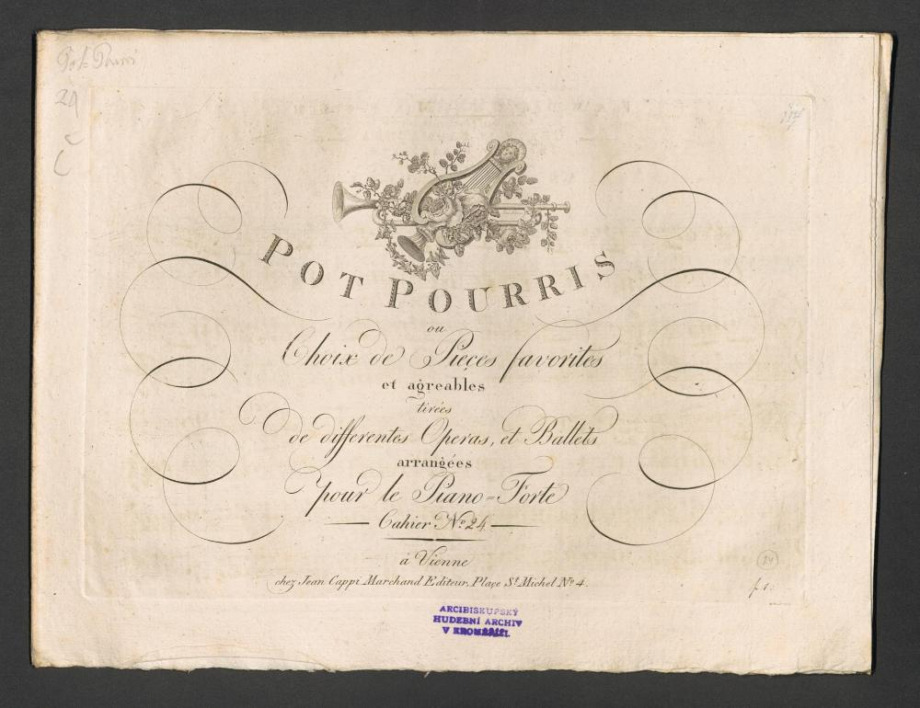 Pot Pourri
24
POT POURRIS
ou
Choix de Pieçes favorites
et agreables
tirées
de differentes Operas, et Ballets
arrangées
pour le Piano=Forte
Cahier No. 24
à Vienne
chez Jean Cappi Marchand Editeur, Plaçe St. Michel No. 4.
ARCIBISKUPSKÝ
HUDEBNÍ ARCHIV
V KROMĚŘÍŽI.